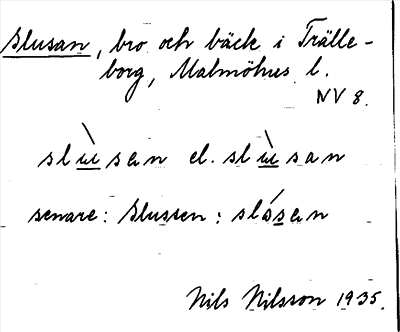 Slusan, bro och bäck i Trälle-
borg, Malmöhus l.
NV 8.
slùsan el. slùsan
senare: Slussen: slósen
Nils Nilsson 1935.